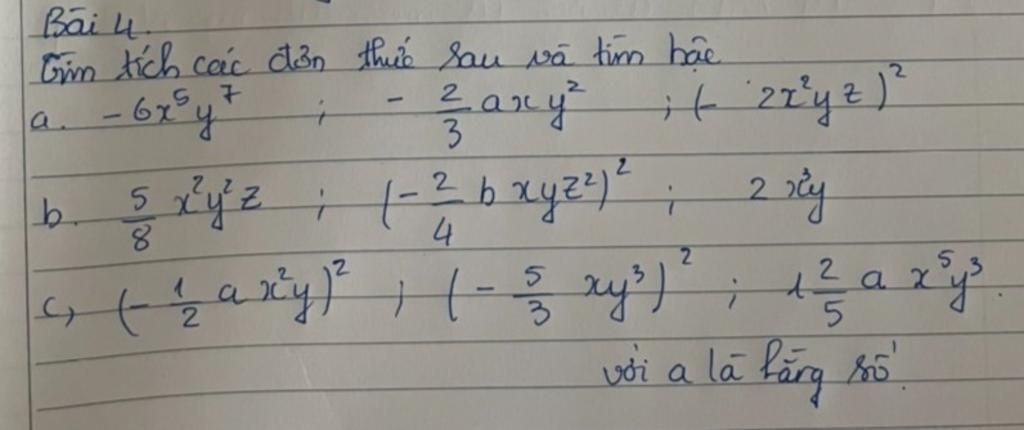 Bài 4.
Tìm tích các đơn thức sau và tìm bậc
a. -6x⁵y⁷ ; - 2/3 axy² ; (- 2x²yz)²
b. 5/8 x²y²z ; (-2/4 b xyz²)² ; 2x³y
c, (-1/2 a x²y)² ; (- 5/3 xy³)² ; 1 2/5 a x⁵y³.
với a là hằng số.